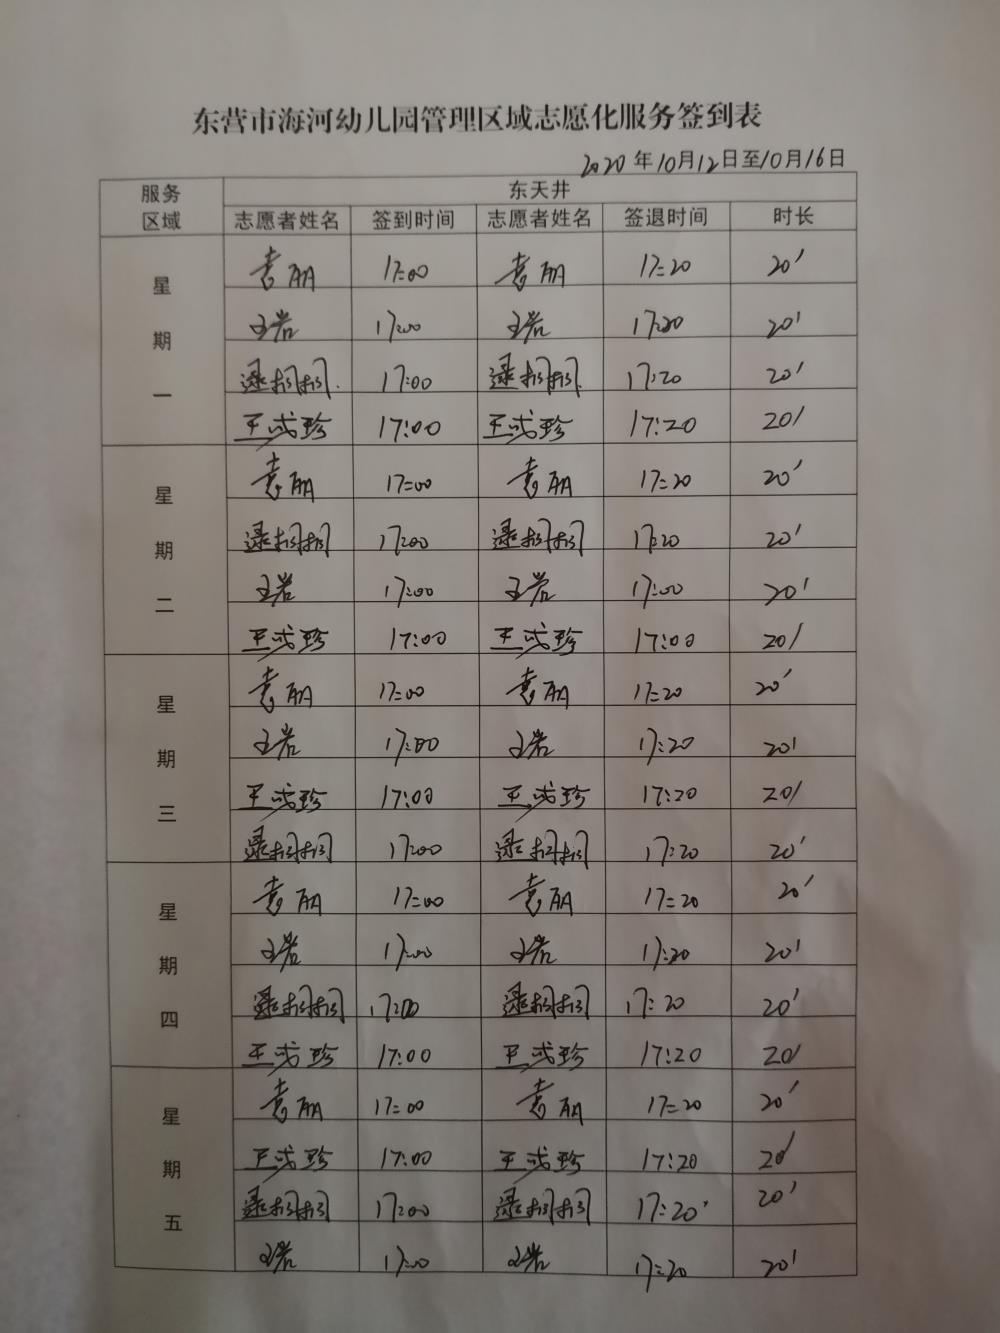 东营市海河幼儿园管理区域志愿化服务签到表
2020年10月12日至10月16日
服务区域 东天井
志愿者姓名 签到时间 志愿者姓名 签退时间 时长
星期一
袁丽 17:00 袁丽 17:20 20'
王岩 17:00 王岩 17:20 20'
逯招招 17:00 逯招招 17:20 20'
王成珍 17:00 王成珍 17:20 20'
星期二
袁丽 17:00 袁丽 17:20 20'
逯招招 17:00 逯招招 17:20 20'
王岩 17:00 王岩 17:00 20'
王成珍 17:00 王成珍 17:00 20'
星期三
袁丽 17:00 袁丽 17:20 20'
王岩 17:00 王岩 17:20 20'
王成珍 17:00 王成珍 17:20 20'
逯招招 17:00 逯招招 17:20 20'
星期四
袁丽 17:00 袁丽 17:20 20'
王岩 17:00 王岩 17:20 20'
逯招招 17:00 逯招招 17:20 20'
王成珍 17:00 王成珍 17:20 20'
星期五
袁丽 17:00 袁丽 17:20 20'
王成珍 17:00 王成珍 17:20 20'
逯招招 17:00 逯招招 17:20' 20'
王岩 17:00 王岩 17:20 20'